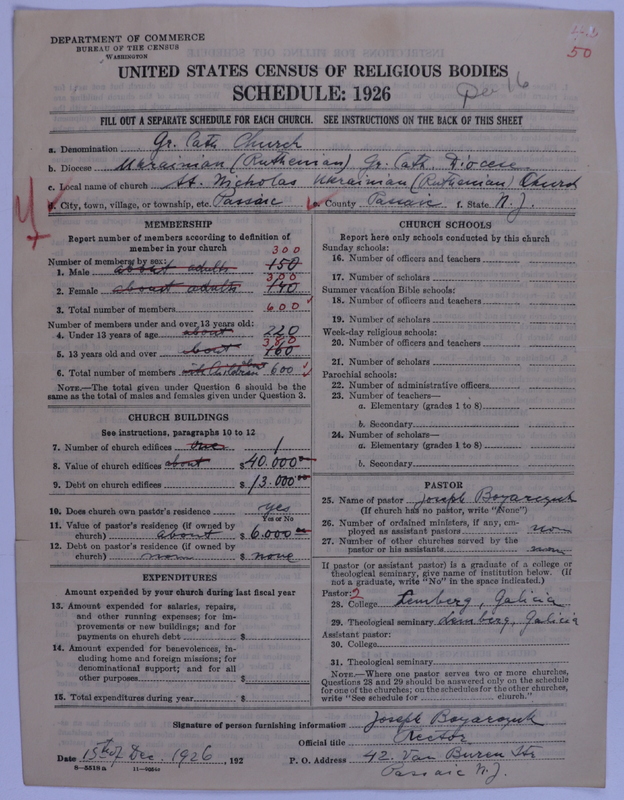 DEPARTMENT OF COMMERCE
BUREAU OF THE CENSUS
WASHINGTON
50
UNITED STATES CENSUS OF RELIGIOUS BODIES
SCHEDULE: 1926
Dec 16
FILL OUT A SEPARATE SCHEDULE FOR EACH CHURCH. SEE INSTRUCTIONS ON THE BACK OF THIS SHEET
a. Denomination Gr. Cath. Church
b. Diocese Ukrainian (Ruthenian) Gr. Cath. Diocese
c. Local name of church St. Nicholas Ukrainian (Ruthenian) Church
d. City, town, village, or township, etc. Passaic e. County Passaic f. State N. J.
MEMBERSHIP
Report number of members according to definition of
member in your church
Number of members by sex: 300
1. Male about adults 150
300
2. Female about adults 140
3. Total number of members 600
Number of members under and over 13 years old:
4. Under 13 years of age about 220
380
5. 13 years old and over about 160
6. Total number of members with children 600
NOTE.—The total given under Question 6 should be the
same as the total of males and females given under Question 3.
CHURCH BUILDINGS
See instructions, paragraphs 10 to 12
7. Number of church edifices one 1
8. Value of church edifices about $ 40.000 00
9. Debt on church edifices $ 13.000 00
10. Does church own pastor's residence yes
Yes or No
11. Value of pastor's residence (if owned by
church) about $ 6.000 00
12. Debt on pastor's residence (if owned by
church) non $ none
EXPENDITURES
Amount expended by your church during last fiscal year
13. Amount expended for salaries, repairs,
and other running expenses; for im-
provements or new buildings; and for
payments on church debt $
14. Amount expended for benevolences, in-
cluding home and foreign missions; for
denominational support; and for all
other purposes $
15. Total expenditures during year $
CHURCH SCHOOLS
Report here only schools conducted by this church
Sunday schools:
16. Number of officers and teachers
17. Number of scholars
Summer vacation Bible schools:
18. Number of officers and teachers
19. Number of scholars
Week-day religious schools:
20. Number of officers and teachers
21. Number of scholars
Parochial schools:
22. Number of administrative officers
23. Number of teachers—
a. Elementary (grades 1 to 8)
b. Secondary
24. Number of scholars—
a. Elementary (grades 1 to 8)
b. Secondary
PASTOR
25. Name of pastor Joseph Boyarczuk
(If church has no pastor, write "None")
26. Number of ordained ministers, if any, em-
ployed as assistant pastors non
27. Number of other churches served by the
pastor or his assistants non
If pastor (or assistant pastor) is a graduate of a college or
theological seminary, give name of institution below. (If
not a graduate, write "No" in the space indicated.)
Pastor: 2
28. College Lemberg, Galicia
29. Theological seminary Lemberg, Galicia
Assistant pastor:
30. College
31. Theological seminary
NOTE.—Where one pastor serves two or more churches,
Questions 28 and 29 should be answered only on the schedule
for one of the churches; on the schedules for the other churches,
write "See schedule for church."
Signature of person furnishing information Joseph Boyarczuk
Official title Rector
Date 15th of Dec. 1926, 192 P. O. Address 42. Van Buren Str
8—5518 a Passaic N. J.